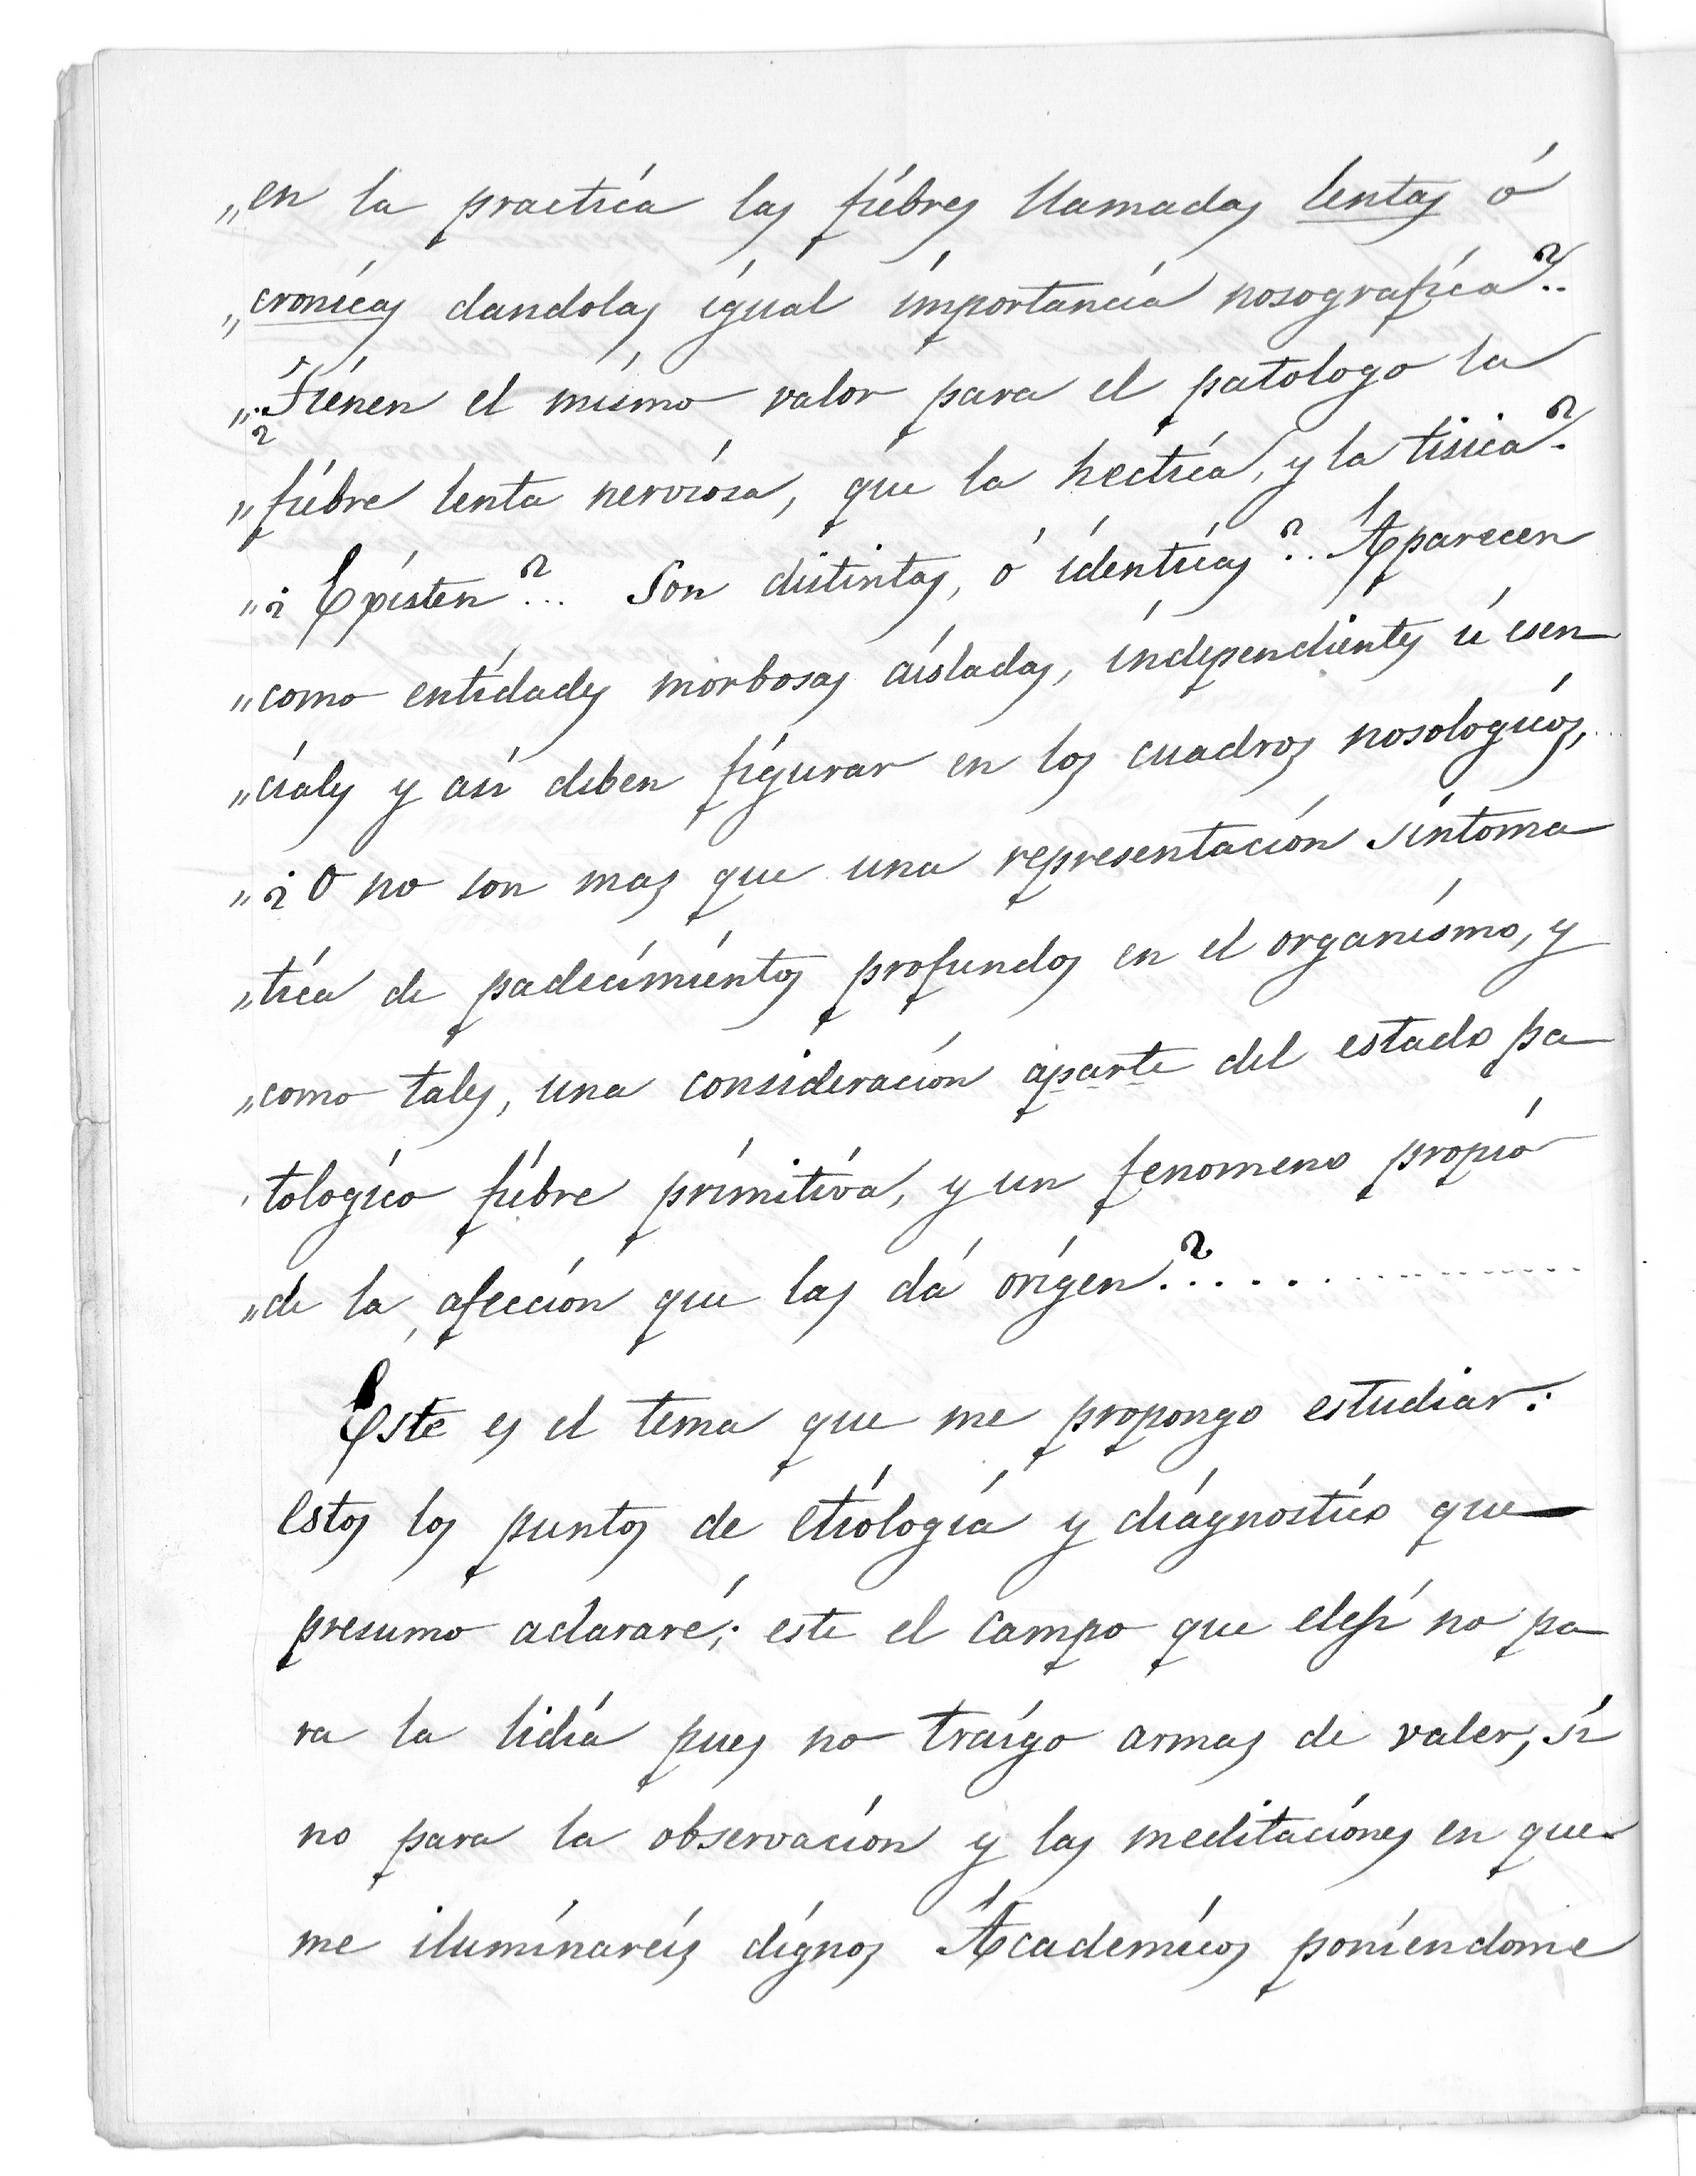 „en la practica las fiebres llamadas lentas ó
„cronicas dandolas igual importancia nosografica?..
„¿Tienen el mismo valor para el patologo la
„fiebre lenta nerviosa, que la hectica, y la tisica?.
„¿Existen?... Son distintas, ó identicas?.. Aparecen
„como entidades morbosas aisladas, independientes ú esen
„ciales y así deben figurar en los cuadros nosologicos,...
„¿O no son mas que una representación sintoma
„tica de padecimientos profundos en el organismo, y
„como tales, una consideración aparte del estado pa
tologico fiebre primitiva, y un fenomeno propio
„de la afección que las dá origen?..................
Este es el tema que me propongo estudiar:
estos los puntos de etiología y diagnostico que
presumo aclararé; este el campo que elejí no pa
ra la lidia pues no traigo armas de valer, si
no para la observación y las meditaciones en que
me iluminareis dignos Academicos poniendome